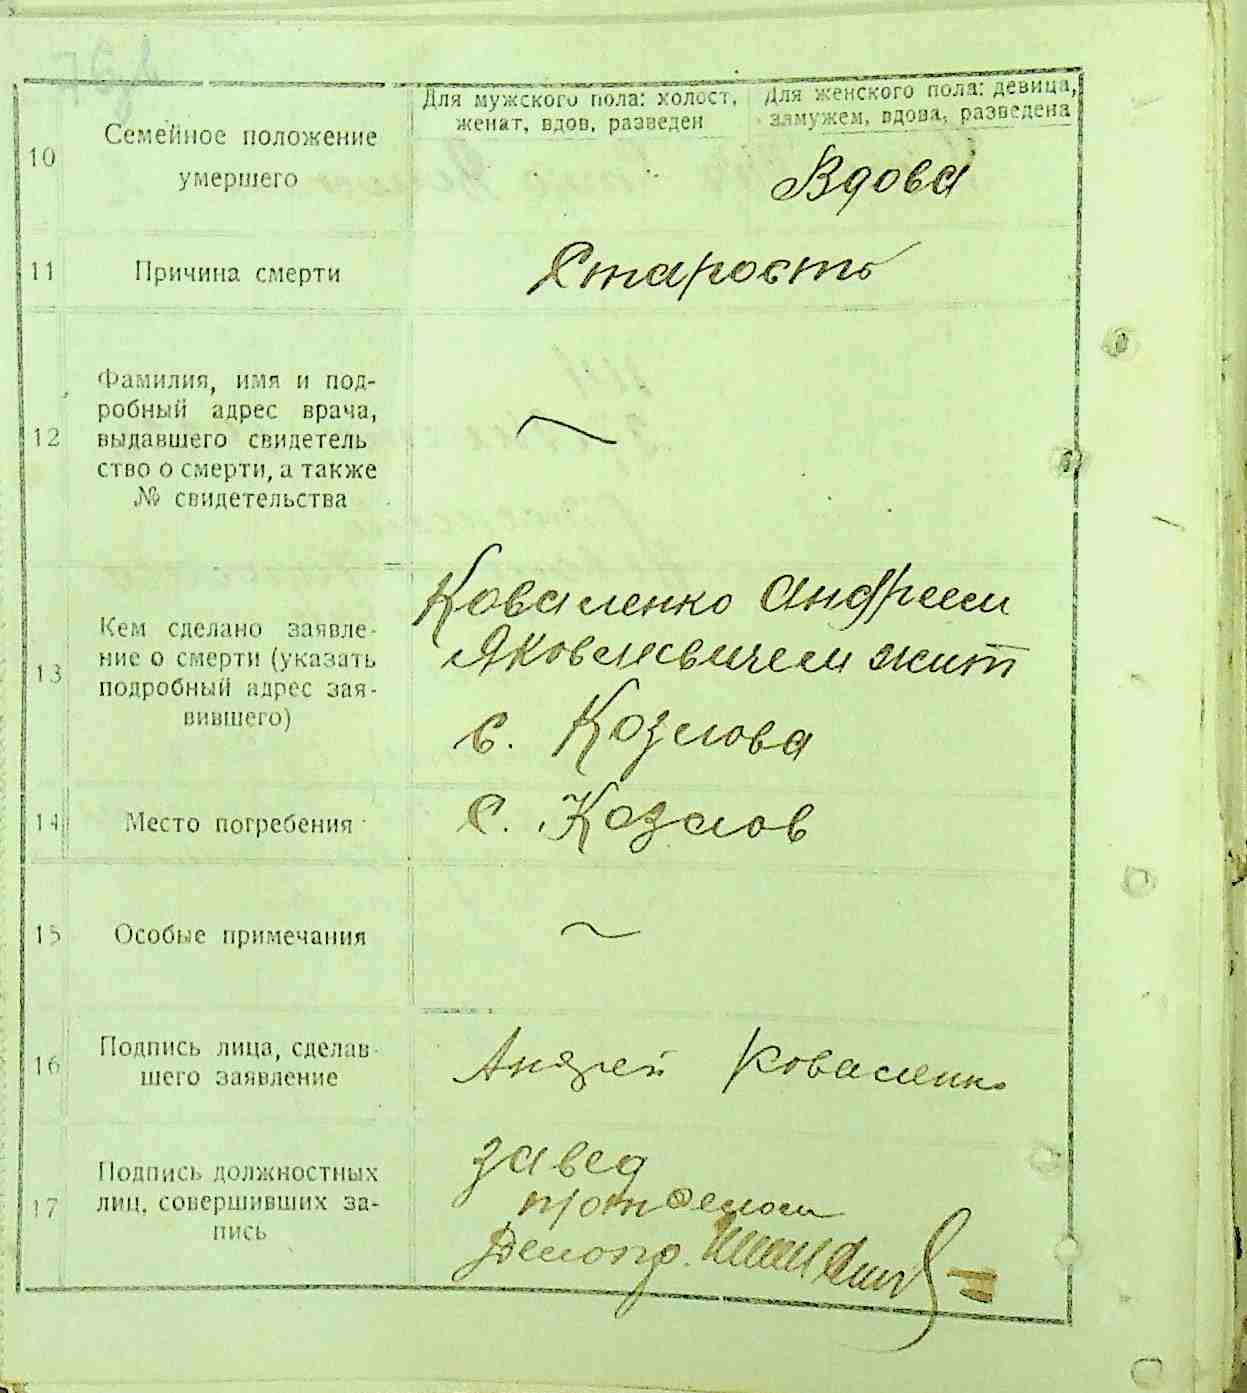 Для мужского пола: холост, женат, вдов, разведен
Для женского пола: девица, замужем, вдова, разведена
10
Семейное положение
умершего
Вдова
11
Причина смерти
Старость
12
Фамилия, имя и под-
робный адрес врача,
выдавшего свидетель
ство о смерти, а также
№ свидетельства
~
13
Кем сделано заявле-
ние о смерти (указать
подробный адрес зая-
вившего)
Коваленко Андреем
Яковлевичем жит
с. Козлова
14
Место погребения
с. Козлов
15
Особые примечания
~
16
Подпись лица, сделав-
шего заявление
Андрей Коваленко
17
Подпись должностных
лиц, совершивших за-
пись
завед
Делопр.